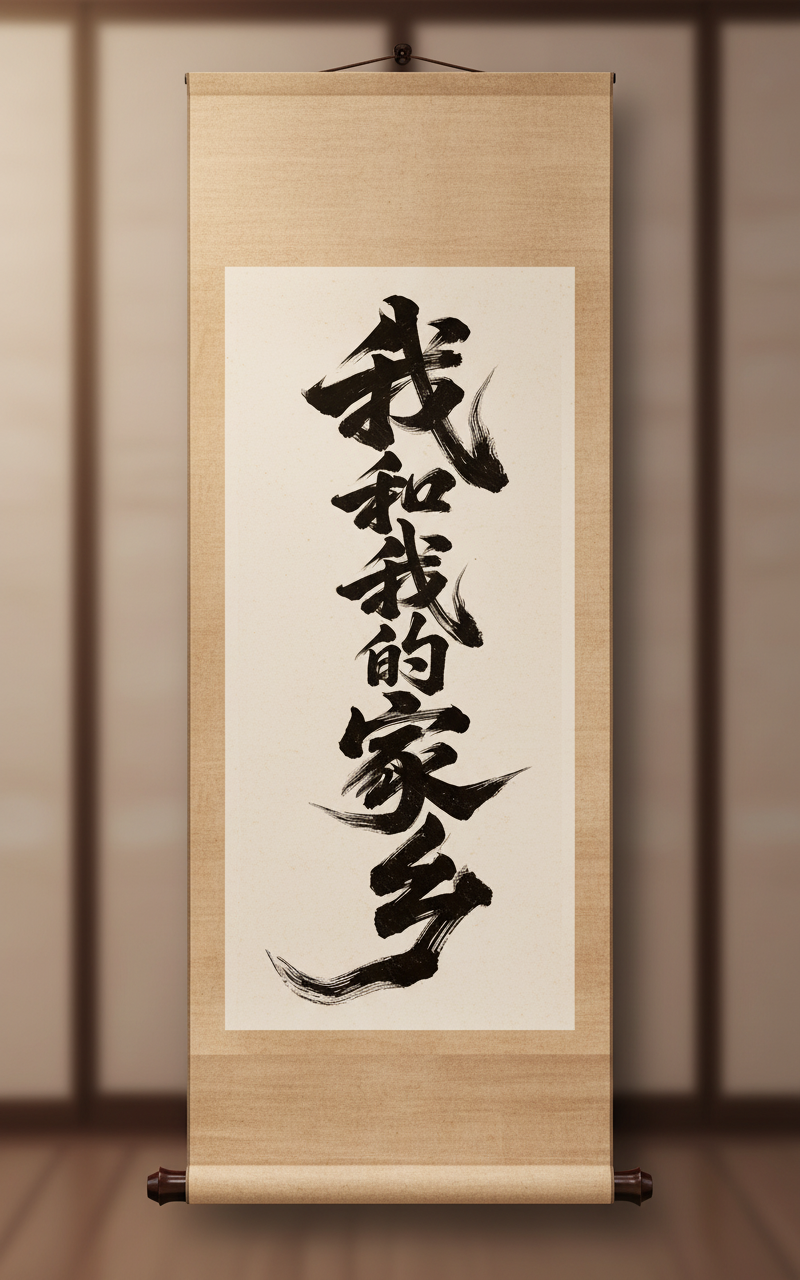 我和我的家乡